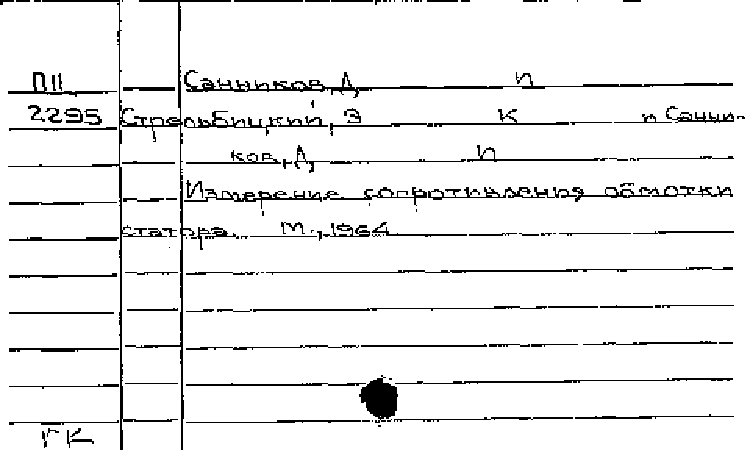 П11 Санников, Д И
2295 Стрельбицкий, Э К и Санни-
ков, Д И
Измерение сопротивления обмотки
статора. М., 1964
ГК